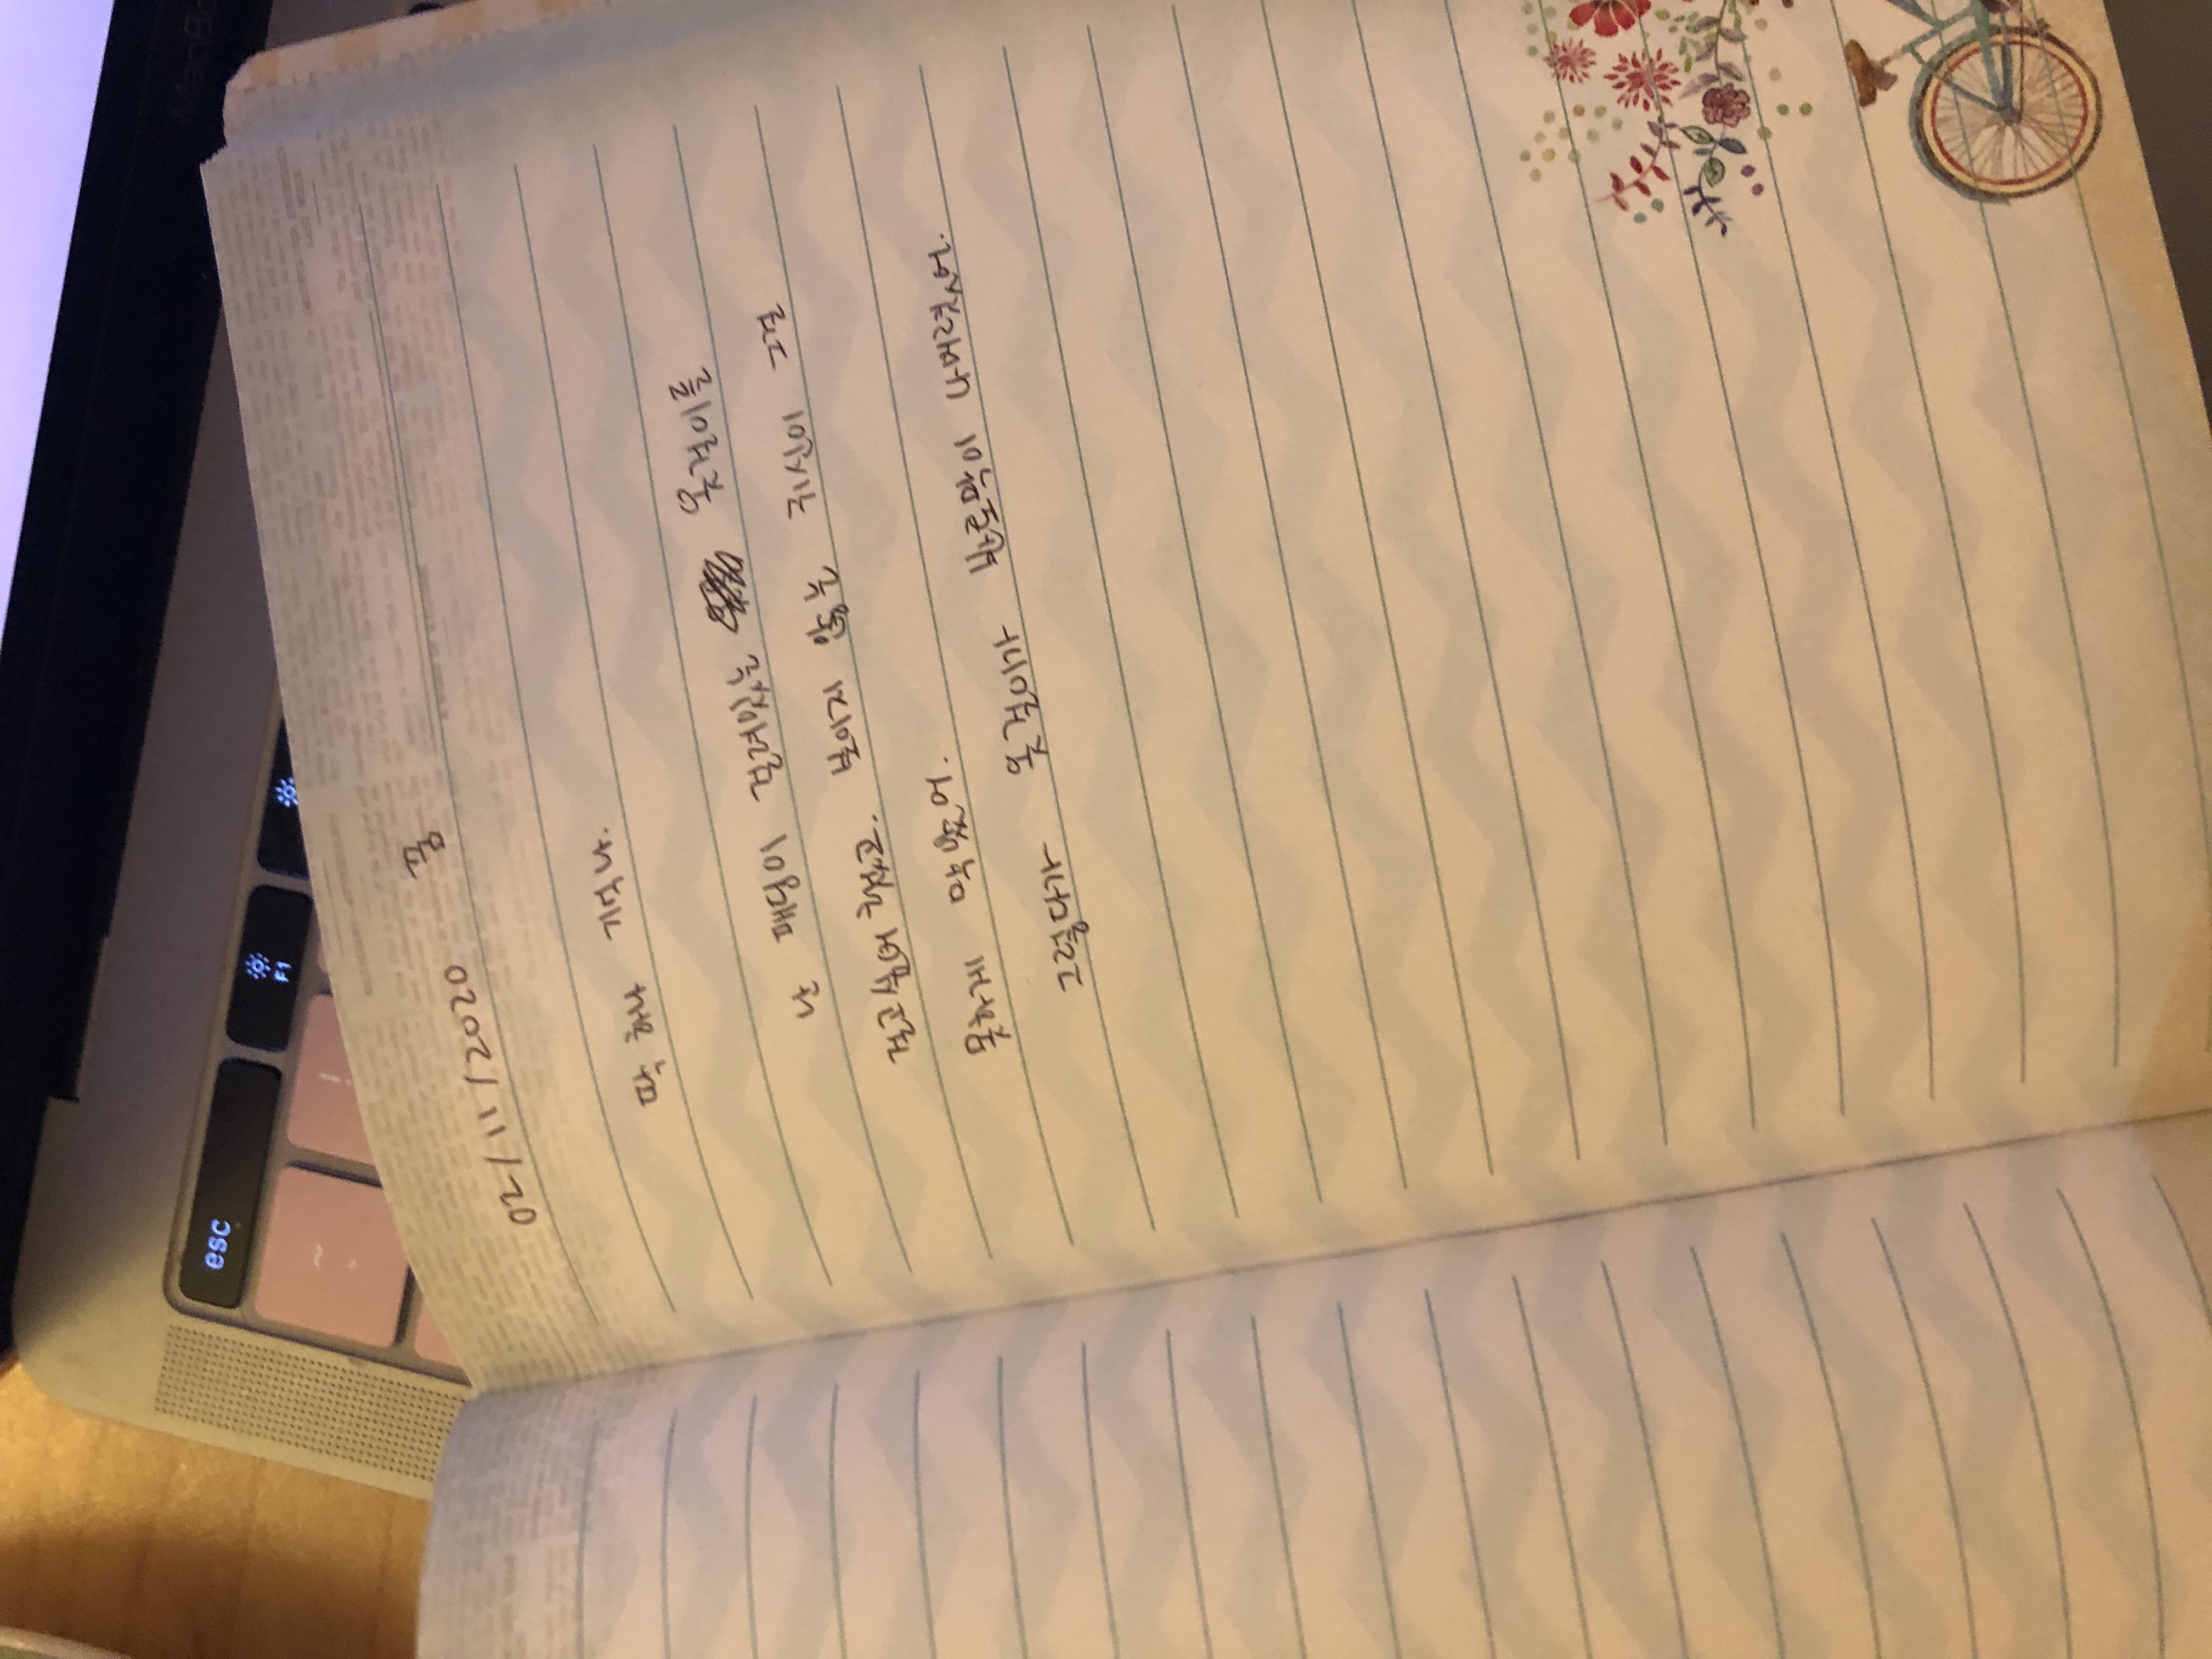 esc
F1
02/11/2020 꿈
딱 하나 기억나.
난 패딩이 걸려있는 옷걸이를
걸고싶어 했고. 보이지 않는 귀신이 그걸
못하게 막았어.
그렇다가 옷걸이가 반토막이 나버렸어.